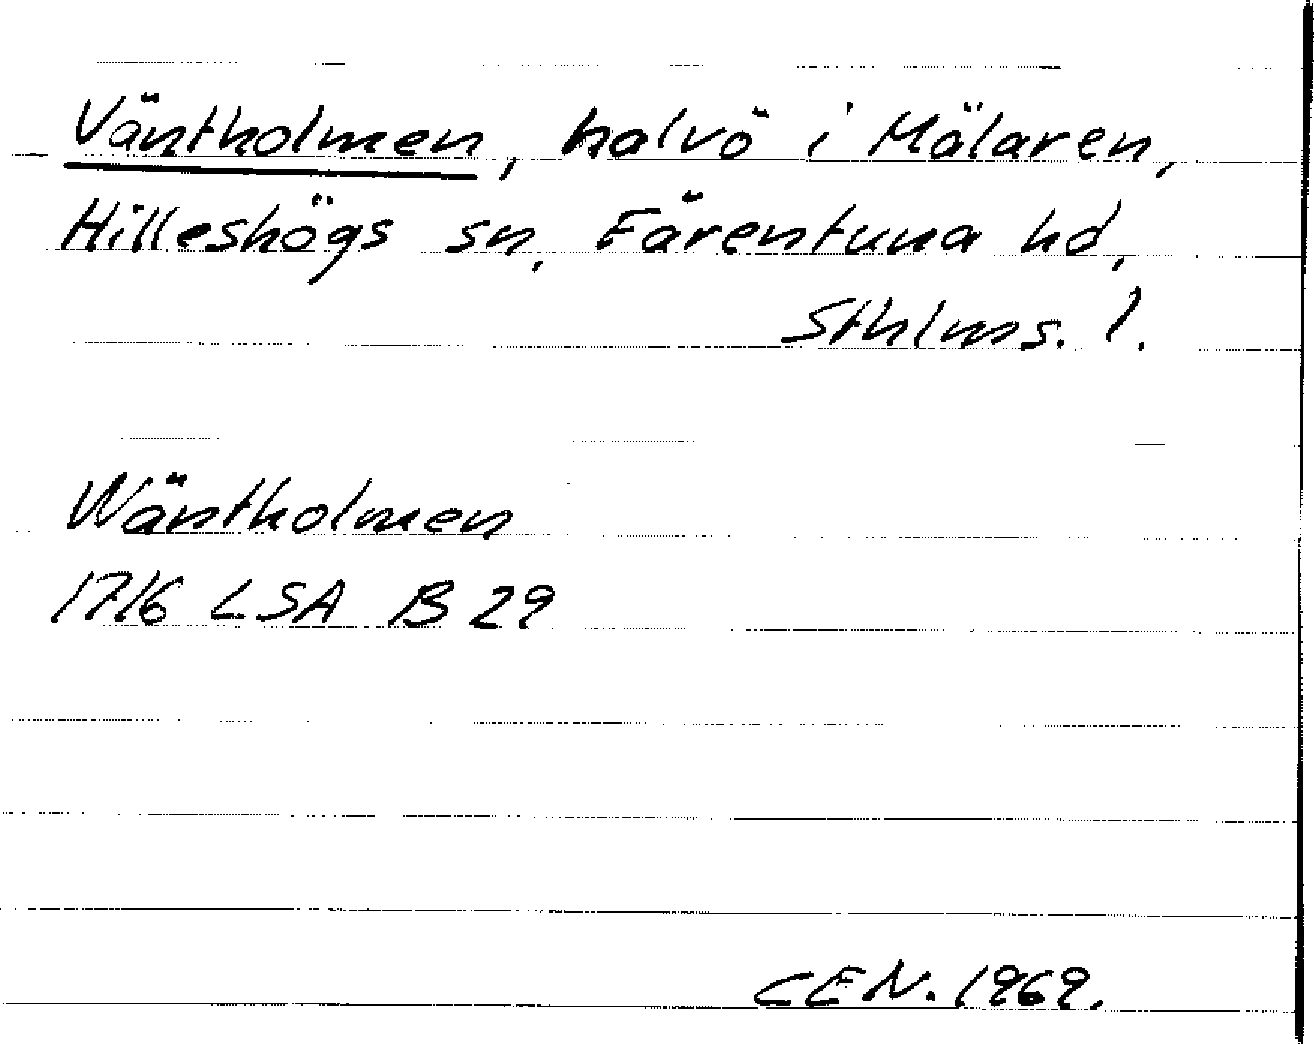 Väntholmen, halvö i Mälaren,
Hilleshögs sn, Färentuna hd,
Sthlms. l.
Wäntholmen
1716 LSA B 29
CEN. 1969.